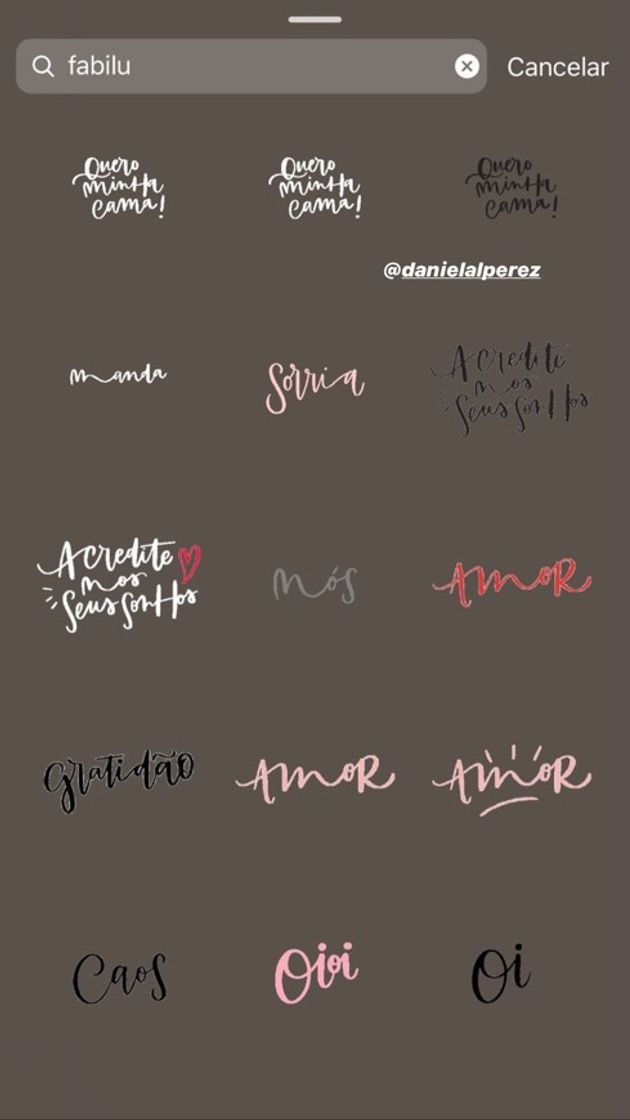 fabilu
Cancelar
Quero
minha
cama!
Quero
minha
cama!
Quero
minha
cama!
@danielalperez
manda
Sorria
Acredite
nos
Seus Sonhos
Acredite
nos
Seus Sonhos
nós
AmoR
Gratidão
AmoR
AmoR
Caos
Oioi
Oi